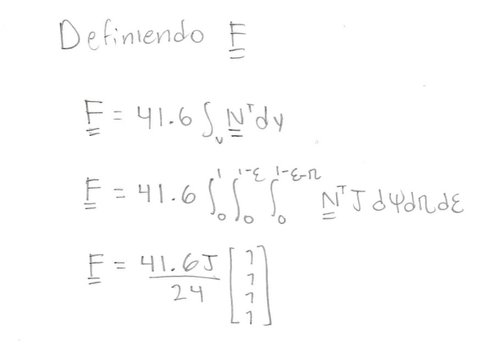 Definiendo F
F = 41.6 ∫ᵥ Nᵀ dv
F = 41.6 ∫₀¹ ∫₀^(1-ε) ∫₀^(1-ε-η) Nᵀ J dψ dη dε
F = 41.6J/24 [1 1 1 1]